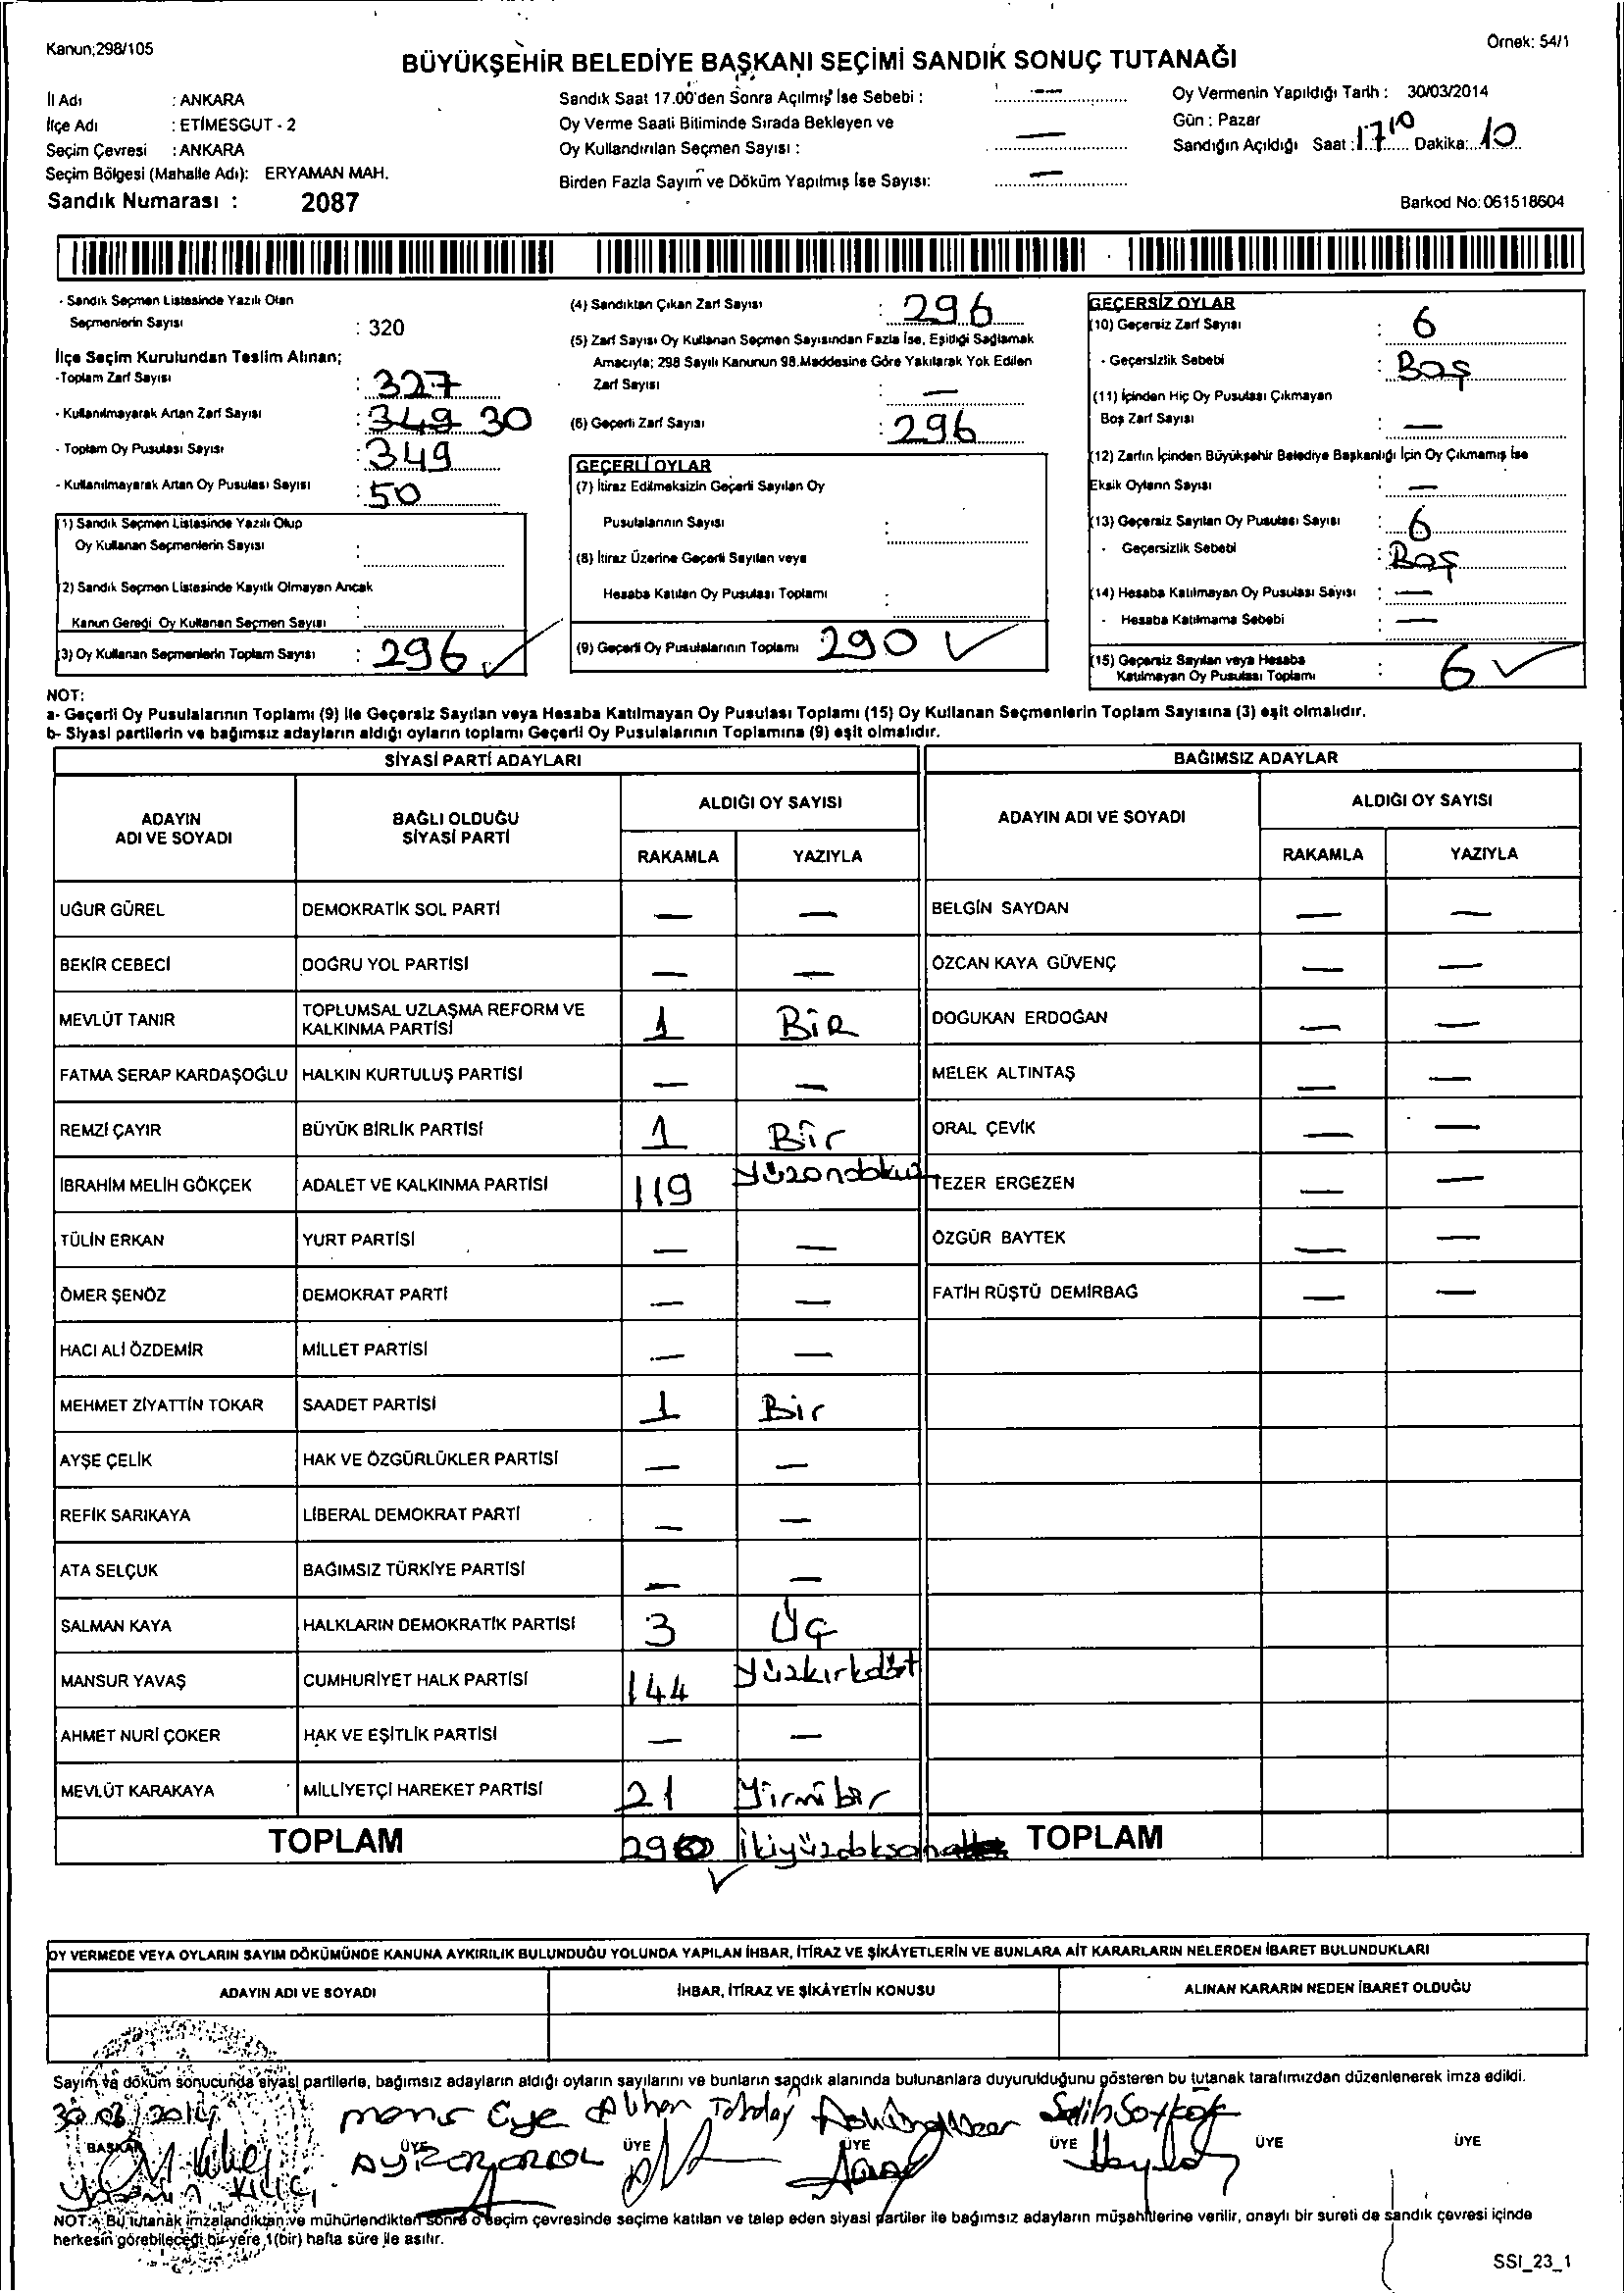 Kanun;298/105
Örnek: 54/1
BÜYÜKŞEHİR BELEDİYE BAŞKANI SEÇİMİ SANDIK SONUÇ TUTANAĞI
İl Adı : ANKARA
İlçe Adı : ETİMESGUT - 2
Seçim Çevresi : ANKARA
Seçim Bölgesi (Mahalle Adı): ERYAMAN MAH.
Sandık Numarası : 2087
Sandık Saat 17.00'den Sonra Açılmış İse Sebebi : —
Oy Verme Saati Bitiminde Sırada Bekleyen ve
Oy Kullandırılan Seçmen Sayısı : —
Birden Fazla Sayım ve Döküm Yapılmış İse Sayısı: —
Oy Vermenin Yapıldığı Tarih : 30/03/2014
Gün : Pazar
Sandığın Açıldığı Saat : 17 10 Dakika: 10
Barkod No: 061518604
- Sandık Seçmen Listesinde Yazılı Olan
Seçmenlerin Sayısı : 320
İlçe Seçim Kurulundan Teslim Alınan;
-Toplam Zarf Sayısı : 327
- Kullanılmayarak Artan Zarf Sayısı : 349 30
- Toplam Oy Pusulası Sayısı : 349
- Kullanılmayarak Artan Oy Pusulası Sayısı : 50
(1) Sandık Seçmen Listesinde Yazılı Olup
Oy Kullanan Seçmenlerin Sayısı :
(2) Sandık Seçmen Listesinde Kayıtlı Olmayan Ancak
Kanun Gereği Oy Kullanan Seçmen Sayısı :
(3) Oy Kullanan Seçmenlerin Toplam Sayısı : 296 ✓
(4) Sandıktan Çıkan Zarf Sayısı : 296
(5) Zarf Sayısı Oy Kullanan Seçmen Sayısından Fazla İse, Eşitliği Sağlamak
Amacıyla; 298 Sayılı Kanunun 98.Maddesine Göre Yakılarak Yok Edilen
Zarf Sayısı : —
(6) Geçerli Zarf Sayısı : 296
GEÇERLİ OYLAR
(7) İtiraz Edilmeksizin Geçerli Sayılan Oy
Pusulalarının Sayısı :
(8) İtiraz Üzerine Geçerli Sayılan veya
Hesaba Katılan Oy Pusulası Toplamı :
(9) Geçerli Oy Pusulalarının Toplamı 290 ✓
GEÇERSİZ OYLAR
(10) Geçersiz Zarf Sayısı : 6
- Geçersizlik Sebebi : Boş
(11) İçinden Hiç Oy Pusulası Çıkmayan
Boş Zarf Sayısı : —
(12) Zarfın İçinden Büyükşehir Belediye Başkanlığı İçin Oy Çıkmamış İse
Eksik Oyların Sayısı : —
(13) Geçersiz Sayılan Oy Pusulası Sayısı : 6
- Geçersizlik Sebebi : Boş
(14) Hesaba Katılmayan Oy Pusulası Sayısı : —
- Hesaba Katılmama Sebebi : —
(15) Geçersiz Sayılan veya Hesaba
Katılmayan Oy Pusulası Toplamı : 6 ✓
NOT:
a- Geçerli Oy Pusulalarının Toplamı (9) ile Geçersiz Sayılan veya Hesaba Katılmayan Oy Pusulası Toplamı (15) Oy Kullanan Seçmenlerin Toplam Sayısına (3) eşit olmalıdır.
b- Siyasi partilerin ve bağımsız adayların aldığı oyların toplamı Geçerli Oy Pusulalarının Toplamına (9) eşit olmalıdır.
SİYASİ PARTİ ADAYLARI
BAĞIMSIZ ADAYLAR
ADAYIN ADI VE SOYADI
BAĞLI OLDUĞU SİYASİ PARTİ
ALDIĞI OY SAYISI
RAKAMLA YAZIYLA
ADAYIN ADI VE SOYADI
ALDIĞI OY SAYISI
RAKAMLA YAZIYLA
UĞUR GÜREL DEMOKRATİK SOL PARTİ — — BELGİN SAYDAN — —
BEKİR CEBECİ DOĞRU YOL PARTİSİ — — ÖZCAN KAYA GÜVENÇ — —
MEVLÜT TANIR TOPLUMSAL UZLAŞMA REFORM VE KALKINMA PARTİSİ 1 BİR DOĞUKAN ERDOĞAN — —
FATMA SERAP KARDAŞOĞLU HALKIN KURTULUŞ PARTİSİ — — MELEK ALTINTAŞ — —
REMZİ ÇAYIR BÜYÜK BİRLİK PARTİSİ 1 Bir ORAL ÇEVİK — —
İBRAHİM MELİH GÖKÇEK ADALET VE KALKINMA PARTİSİ 119 yüzondokuz TEZER ERGEZEN — —
TÜLİN ERKAN YURT PARTİSİ — — ÖZGÜR BAYTEK — —
ÖMER ŞENÖZ DEMOKRAT PARTİ — — FATİH RÜŞTÜ DEMİRBAĞ — —
HACI ALİ ÖZDEMİR MİLLET PARTİSİ — —
MEHMET ZİYATTİN TOKAR SAADET PARTİSİ 1 Bir
AYŞE ÇELİK HAK VE ÖZGÜRLÜKLER PARTİSİ — —
REFİK SARIKAYA LİBERAL DEMOKRAT PARTİ — —
ATA SELÇUK BAĞIMSIZ TÜRKİYE PARTİSİ — —
SALMAN KAYA HALKLARIN DEMOKRATİK PARTİSİ 3 Üç
MANSUR YAVAŞ CUMHURİYET HALK PARTİSİ 144 yüzkırkdört
AHMET NURİ ÇOKER HAK VE EŞİTLİK PARTİSİ — —
MEVLÜT KARAKAYA MİLLİYETÇİ HAREKET PARTİSİ 21 Yirmibir
TOPLAM 290 ikiyüzdoksan TOPLAM
✓
OY VERMEDE VEYA OYLARIN SAYIM DÖKÜMÜNDE KANUNA AYKIRILIK BULUNDUĞU YOLUNDA YAPILAN İHBAR, İTİRAZ VE ŞİKÂYETLERİN VE BUNLARA AİT KARARLARIN NELERDEN İBARET BULUNDUKLARI
ADAYIN ADI VE SOYADI İHBAR, İTİRAZ VE ŞİKÂYETİN KONUSU ALINAN KARARIN NEDEN İBARET OLDUĞU
Sayım ve döküm sonucunda siyasi partilerle, bağımsız adayların aldığı oyların sayılarını ve bunların sandık alanında bulunanlara duyurulduğunu gösteren bu tutanak tarafımızdan düzenlenerek imza edildi.
30/03/2014
BAŞKAN ÜYE ÜYE ÜYE ÜYE ÜYE ÜYE
NOT: Bu tutanak imzalandıktan ve mühürlendikten sonra o seçim çevresinde seçime katılan ve talep eden siyasi partiler ile bağımsız adayların müşahitlerine verilir, onaylı bir sureti de sandık çevresi içinde
herkesin görebileceği bir yere 1(bir) hafta süre ile asılır.
SSI_23_1